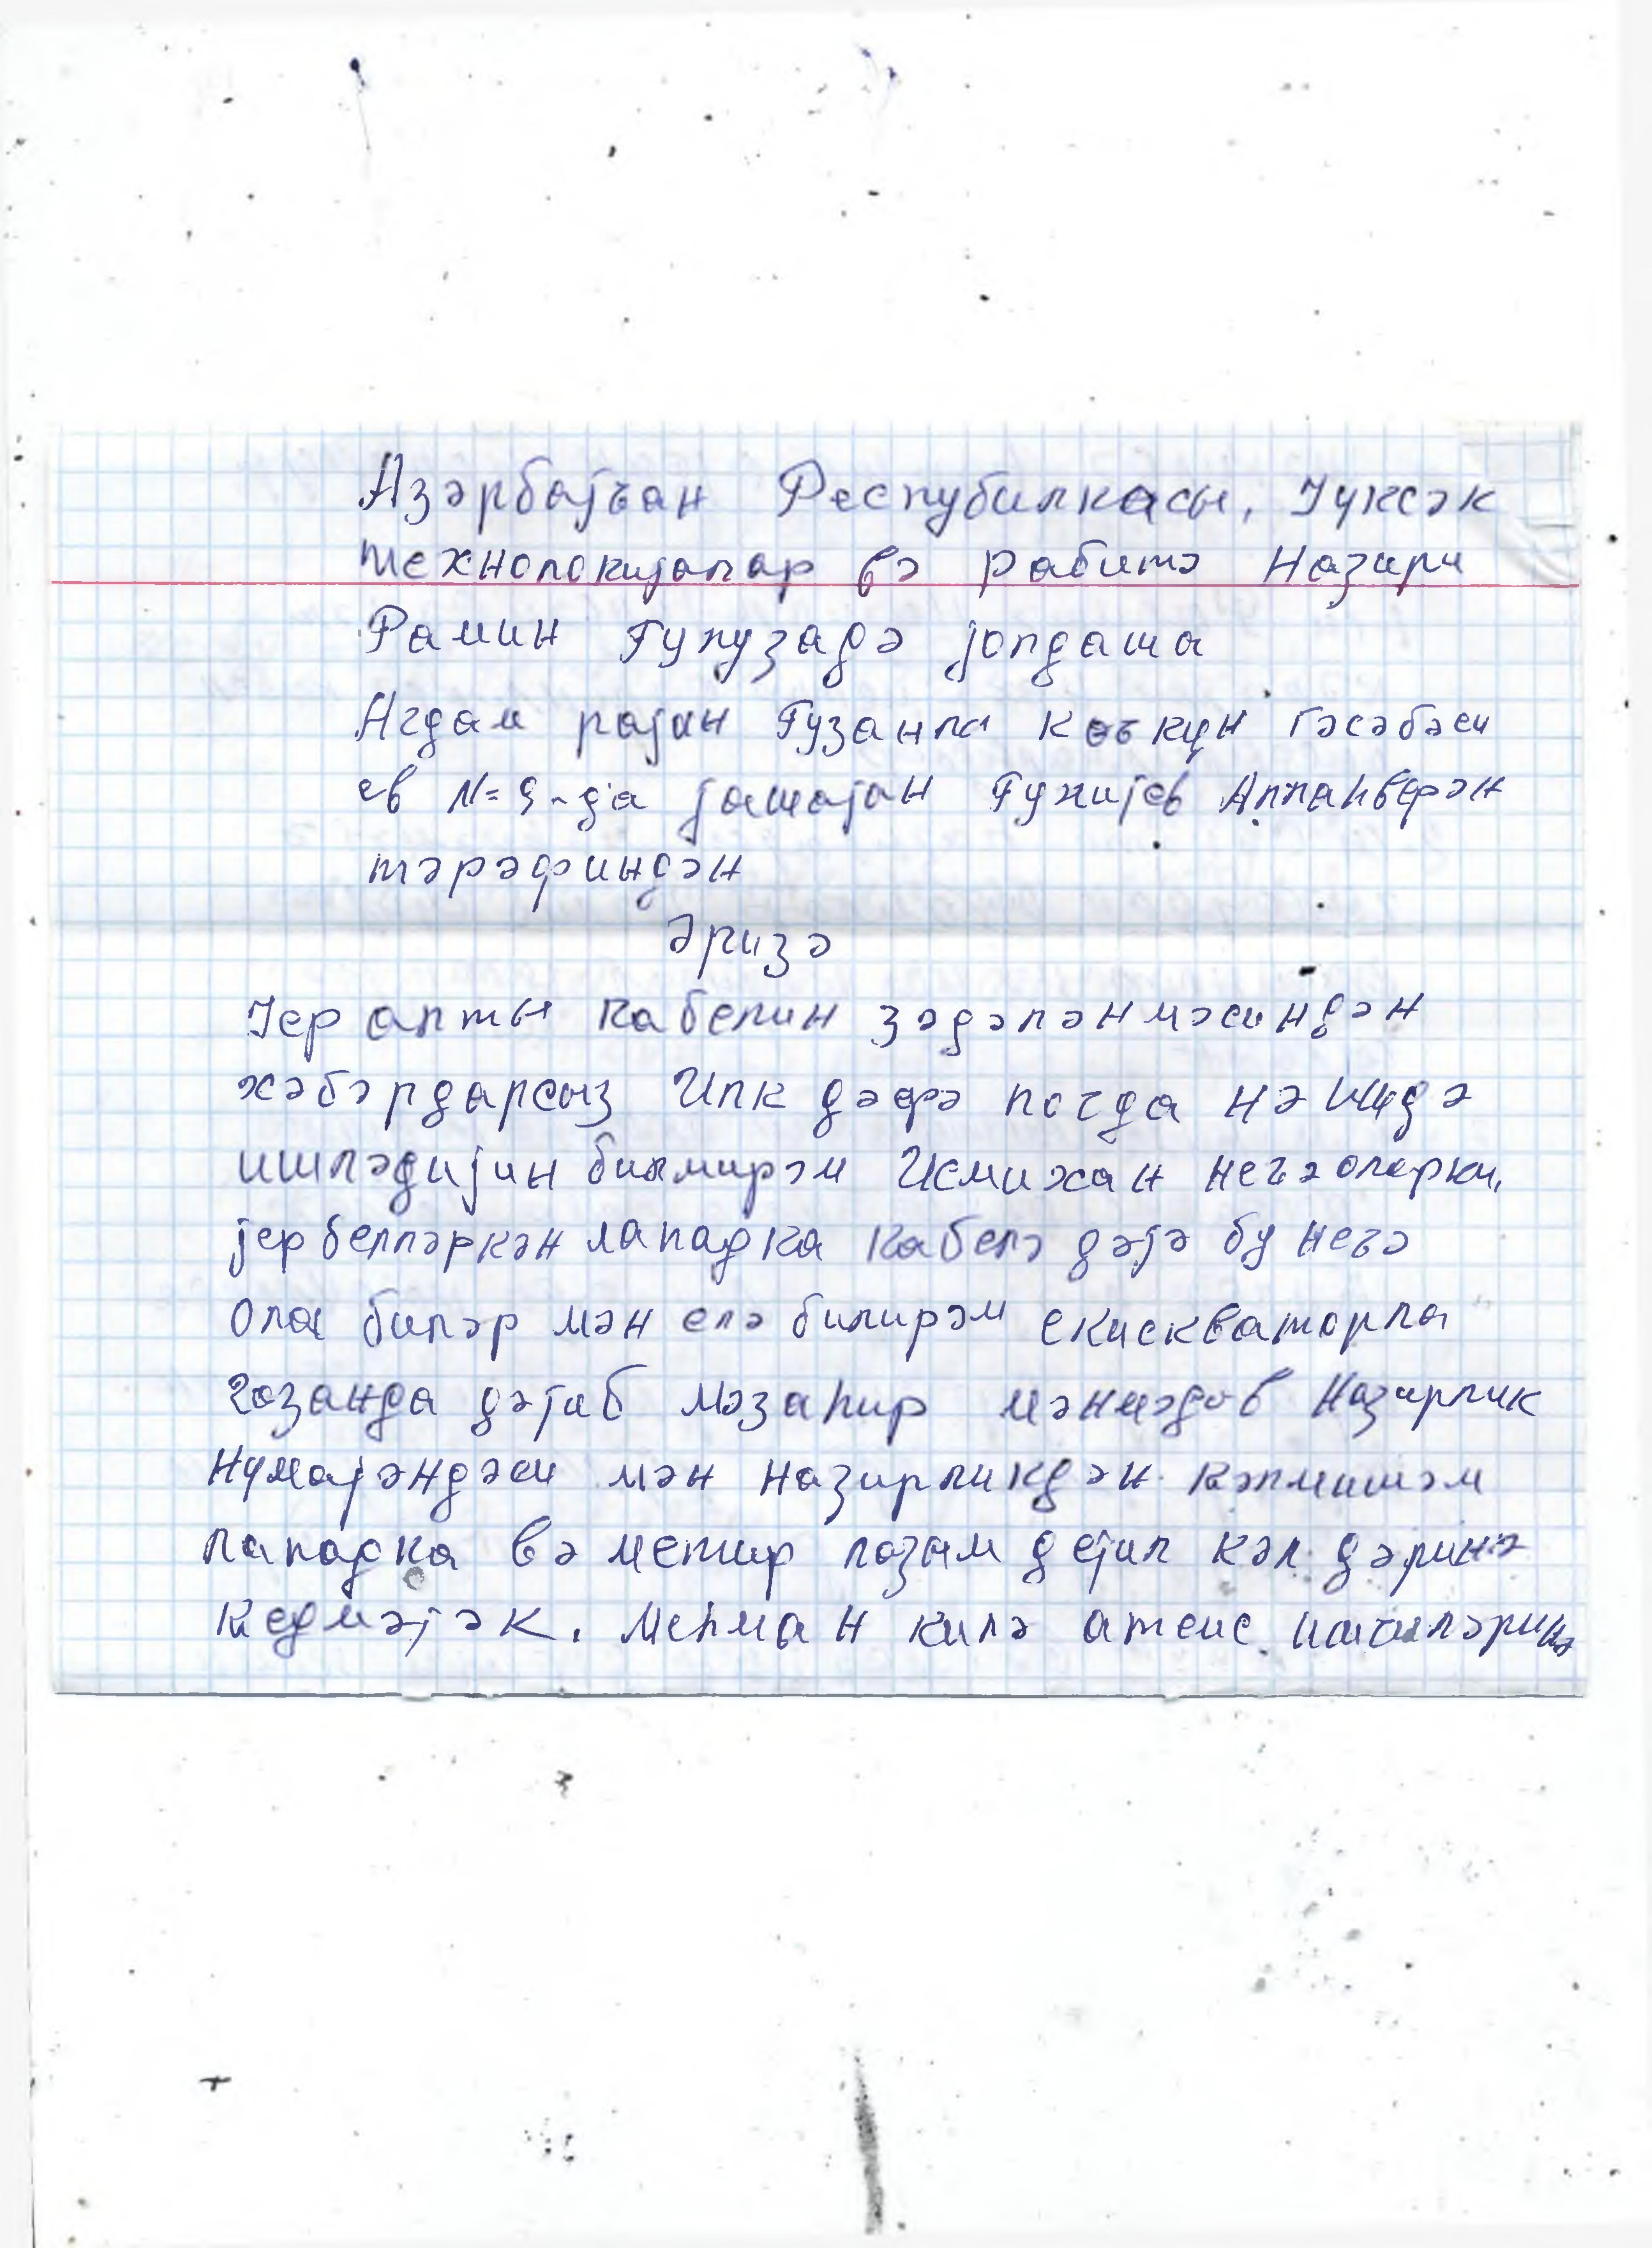 Азәрбајҹан Республикасы, Јуксәк
технолокијалар вә рабитә Назири
Рамин Гулузадә јолдаша
Агдам рајон Гузанлы көчкүн гәсәбәси
ев №=9-да јашајан Гулијев Аллаһверән
тәрәфиндән
Әризә
Јер алты кабелин зәдәләнмәсиндән
хәбәрдарсыз Илк дәфә логда нә
ишләдијин билмирәм Исмихан неҹә олерки,
јер белләркән лападка кабелә дәјә бу неҹә
Ола биләр мән елә билирәм екискваторла
газанда дәјиб Мәзаһир мәһмәдов Назирлик
Нумајәндәси мән назирликдән кәлмишәм
лападка вә метир лазым дејил кәл дәринә
кедмәјәк. Меһман килә атеис ишчиләринә